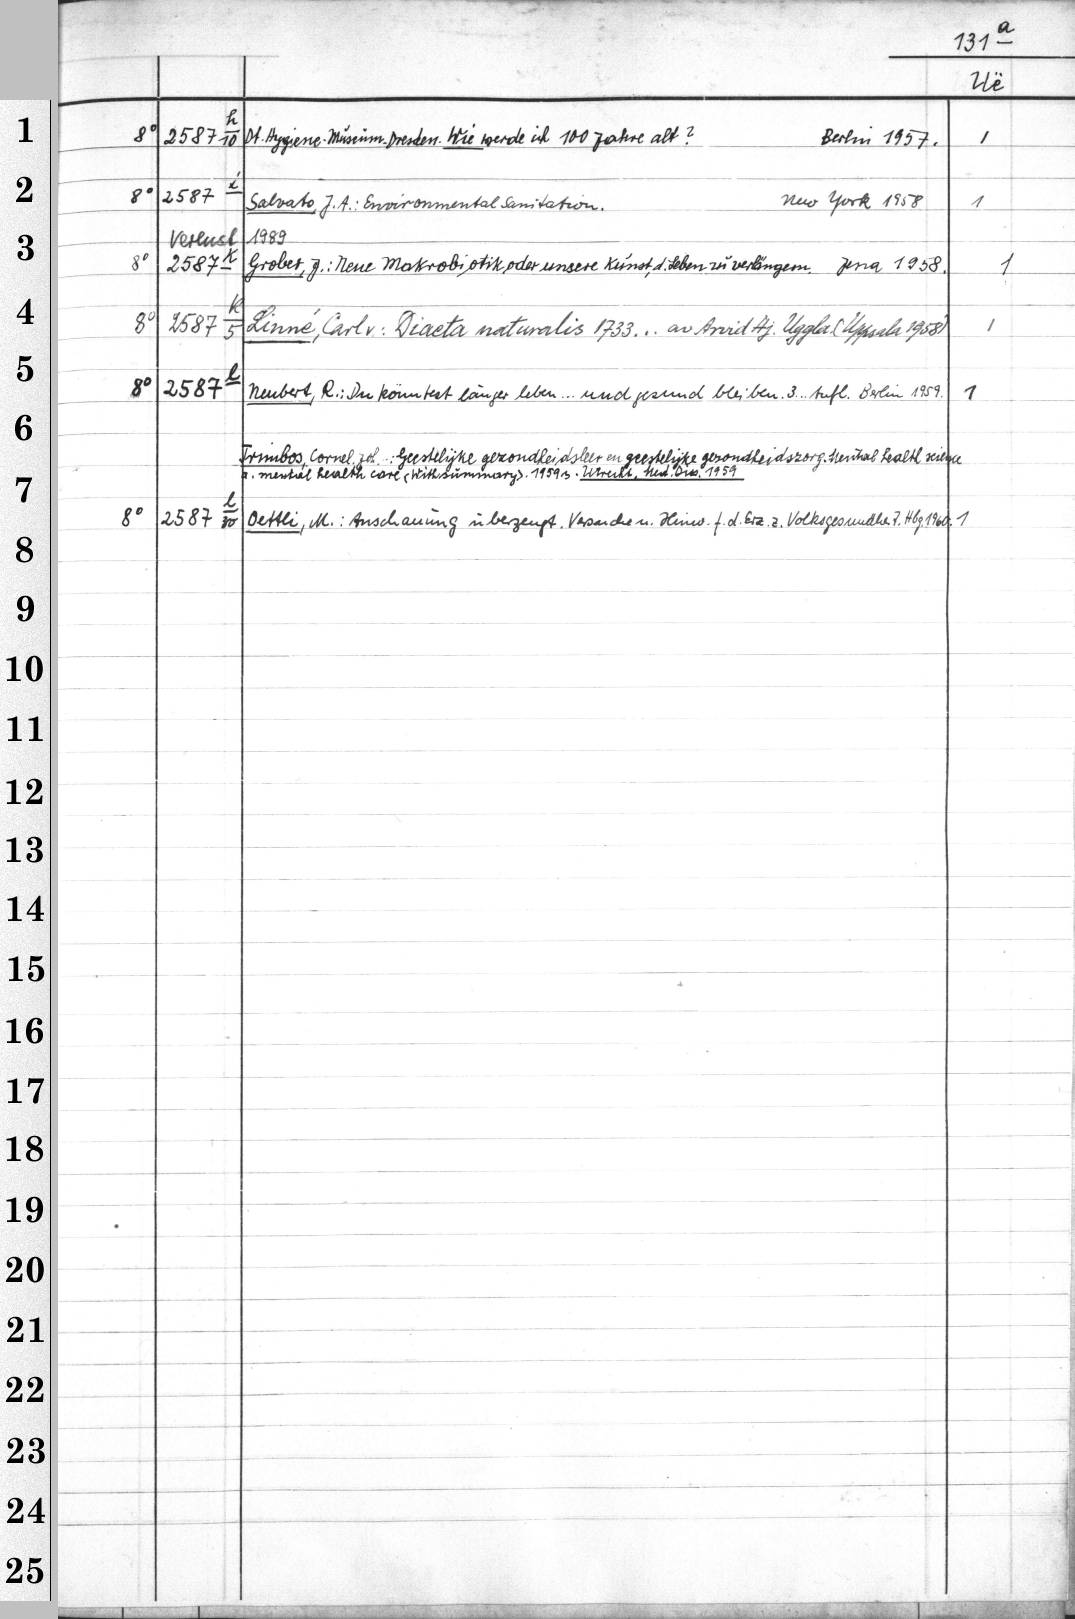 131 a
Uë
1
8° 2587 h/10 Dt. Hygiene-Museum. Dresden. Wie werde ich 100 Jahre alt? Berlin 1957. 1
2
8° 2587 i Salvato, J. A.: Environmental Sanitation. New York 1958 1
Verlust 1989
3
8° 2587 k Grober, J.: Neue Makrobiotik, oder unsere Kunst, d. Leben zu verlängern. Jena 1958. 1
4
8° 2587 k/5 Linné, Carl v.: Diaeta naturalis 1733... av Arvid Hj. Uggla. (Uppsala 1958) 1
5
8° 2587 l Neubert, R.: Du könntest länger leben... und gesund bleiben. 3... Aufl. Berlin 1959. 1
6
Trimbos, Cornel. Joh. : Geestelijke gezondheidsleer en geestelijke gezondheidszorg. Mental health science
a. mental health care (With summary). 1959. Utrecht, Med. Diss. 1959
7
8° 2587 l/30 Oettli, M.: Anschauung überzeugt. Versuche u. Hinw. f. d. Erz. z. Volksgesundh. Hbg. 1960. 1
8
9
10
11
12
13
14
15
16
17
18
19
20
21
22
23
24
25